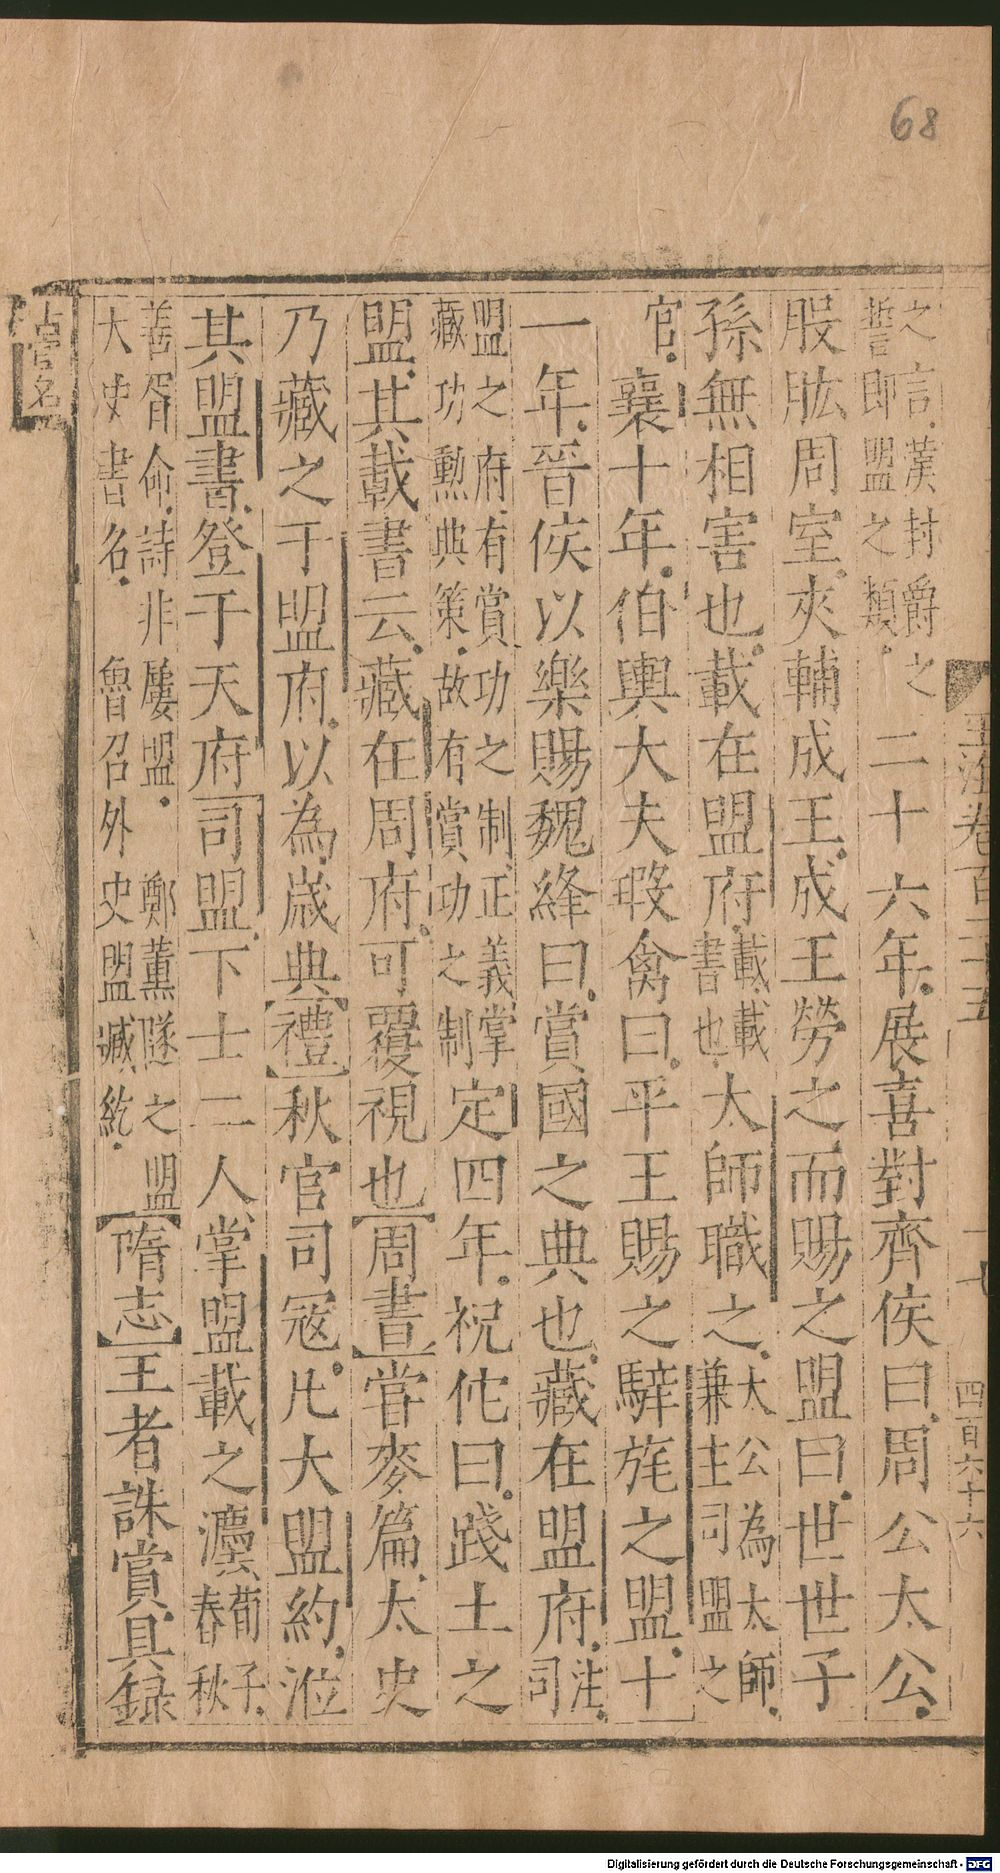 68
之言漢封爵之
誓即盟之類。
二十六年。展喜對齊侯曰。周公太公。
股肱周室。夾輔成王。成王勞之而賜之盟曰。世世子
孫無相害也。載在盟府。
載載
書也。
太師職之。
太公為太師。
兼主司盟之
官。
襄十年。伯輿大夫瑕禽曰。平王賜之騂旄之盟。十
一年。晉侯以樂賜魏絳曰。賞國之典也。藏在盟府。
注。
司
盟之府有賞功之制。正義掌
藏功勳典策。故有賞功之制
定四年。祝佗曰。踐土之
盟。其載書云。藏在周府。可覆視也【周書】嘗麥篇。太史
乃藏之于盟府。以為歲典【禮】秋官司寇。凡大盟約。涖
其盟書。登于天府【司盟。下士二人。掌盟載之灋
荀子。
春秋
善胥命。詩非屢盟。 鄭薰隧之盟
大史書名。 魯召外史盟臧紇。
【隋志】王者誅賞。具錄
玉海卷百二十五
十七
四百六十六
占官名
Digitalisierung gefördert durch die Deutsche Forschungsgemeinschaft - DFG